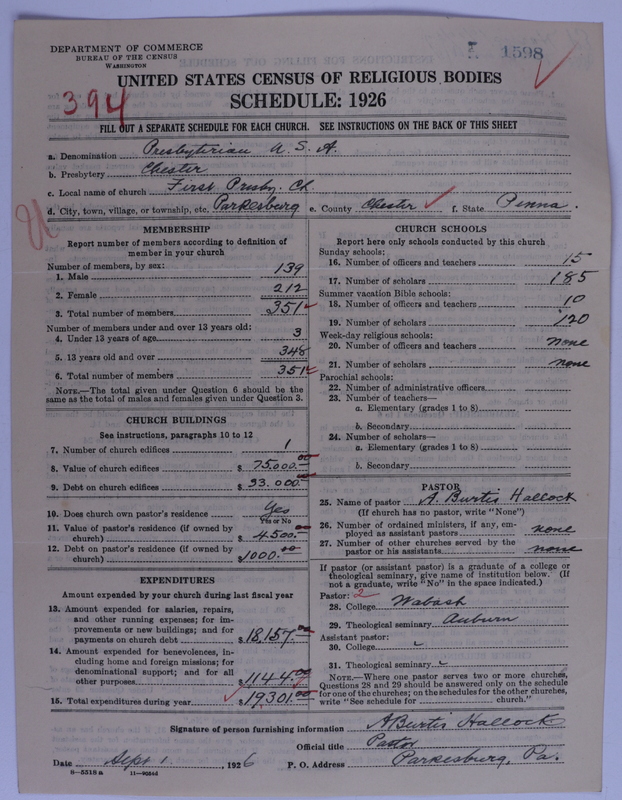 DEPARTMENT OF COMMERCE
BUREAU OF THE CENSUS
WASHINGTON
1598
UNITED STATES CENSUS OF RELIGIOUS BODIES
394
SCHEDULE: 1926
FILL OUT A SEPARATE SCHEDULE FOR EACH CHURCH. SEE INSTRUCTIONS ON THE BACK OF THIS SHEET
a. Denomination Presbyterian U. S. A.
b. Presbytery Chester
c. Local name of church First Presby. Ch.
d. City, town, village, or township, etc. Parkesburg e. County Chester f. State Penna.
MEMBERSHIP
Report number of members according to definition of
member in your church
Number of members, by sex:
1. Male 139
2. Female 212
3. Total number of members 351
Number of members under and over 13 years old:
4. Under 13 years of age 3
5. 13 years old and over 348
6. Total number of members 351
NOTE.—The total given under Question 6 should be the
same as the total of males and females given under Question 3.
CHURCH BUILDINGS
See instructions, paragraphs 10 to 12
7. Number of church edifices 1
8. Value of church edifices $ 75,000.00
9. Debt on church edifices $ 33,000.00
10. Does church own pastor's residence Yes
Yes or No
11. Value of pastor's residence (if owned by
church) $ 4500.00
12. Debt on pastor's residence (if owned by
church) $ 1000.00
EXPENDITURES
Amount expended by your church during last fiscal year
13. Amount expended for salaries, repairs,
and other running expenses; for im-
provements or new buildings; and for
payments on church debt $ 18,157.00
14. Amount expended for benevolences, in-
cluding home and foreign missions; for
denominational support; and for all
other purposes $ 1144.00
15. Total expenditures during year $ 19301.00
CHURCH SCHOOLS
Report here only schools conducted by this church
Sunday schools:
16. Number of officers and teachers 15
17. Number of scholars 185
Summer vacation Bible schools:
18. Number of officers and teachers 10
19. Number of scholars 120
Week-day religious schools:
20. Number of officers and teachers none
21. Number of scholars none
Parochial schools:
22. Number of administrative officers
23. Number of teachers—
a. Elementary (grades 1 to 8)
b. Secondary
24. Number of scholars—
a. Elementary (grades 1 to 8)
b. Secondary
PASTOR
25. Name of pastor A. Burtis Hallock
(If church has no pastor, write "None")
26. Number of ordained ministers, if any, em-
ployed as assistant pastors none
27. Number of other churches served by the
pastor or his assistants none
If pastor (or assistant pastor) is a graduate of a college or
theological seminary, give name of institution below. (If
not a graduate, write "No" in the space indicated.)
Pastor: 2
28. College Wabash
29. Theological seminary Auburn
Assistant pastor:
30. College
31. Theological seminary
NOTE.—Where one pastor serves two or more churches,
Questions 28 and 29 should be answered only on the schedule
for one of the churches; on the schedules for the other churches,
write "See schedule for church."
Signature of person furnishing information A Burtis Hallock
Official title Pastor
Date Sept 1, 1926 P. O. Address Parkesburg, Pa.
8—5518a 11—9034d